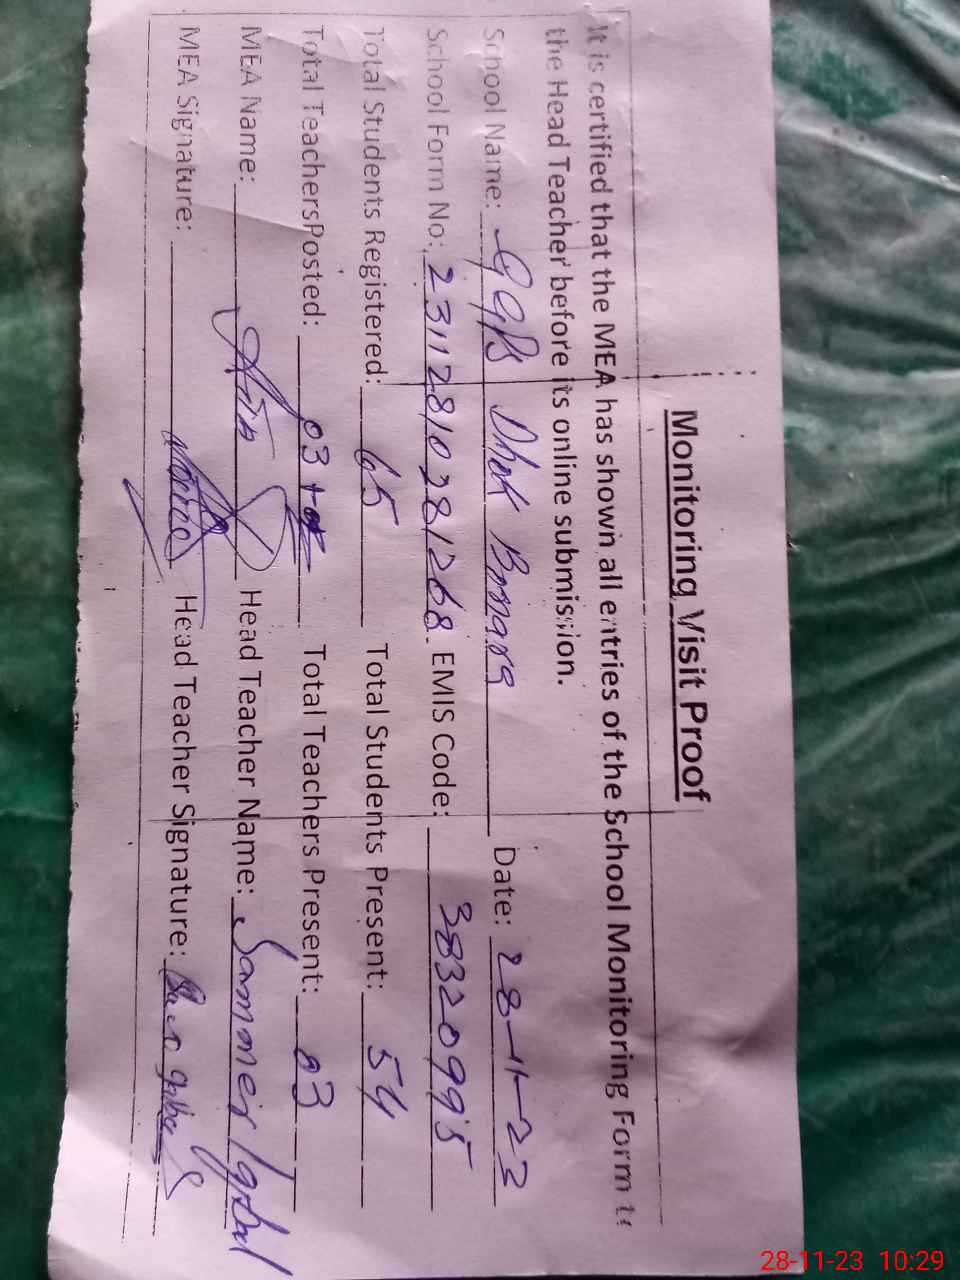 Monitoring Visit Proof
It is certified that the MEA has shown all entries of the School Monitoring Form to
the Head Teacher before its online submission.
School Name: GGPS Dhok Date: 28-11-23
School Form No: 231128109281268 EMIS Code: 38320995
Total Students Registered: 65 Total Students Present: 54
Total TeachersPosted: 03 Total Teachers Present: 03
MEA Name: Head Teacher Name: Sammer Iqbal
MEA Signature: Head Teacher Signature:
28-11-23 10:29